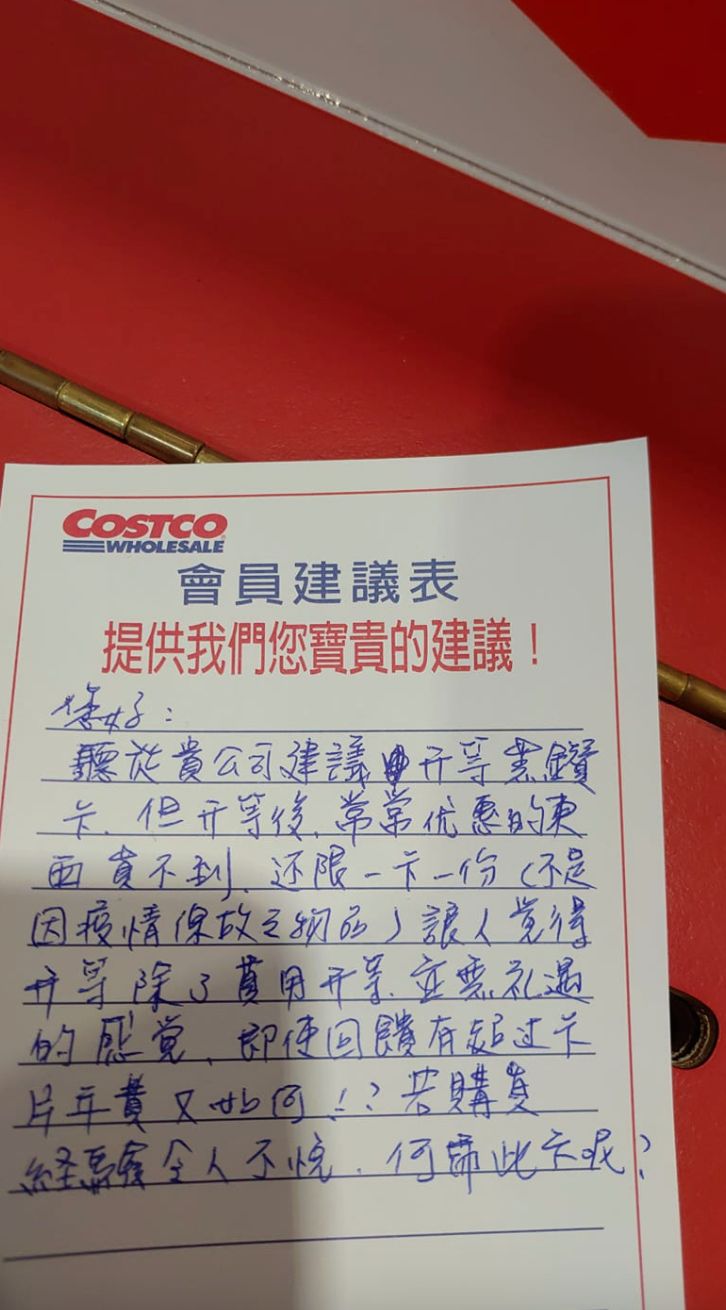 COSTCO
WHOLESALE
會員建議表
提供我們您寶貴的建議！
您好：
聽從貴公司建議升等黑鑽
卡、但升等後、常常优惠的東
西買不到、还限一卡一份（不是
因疫情緣故之物品）讓人覚得
升等除了費用升等、並無礼遇
的感覚、即使回饋有超过卡
片年費又如何！？若購買
経驗令人不悅、何需此卡呢？